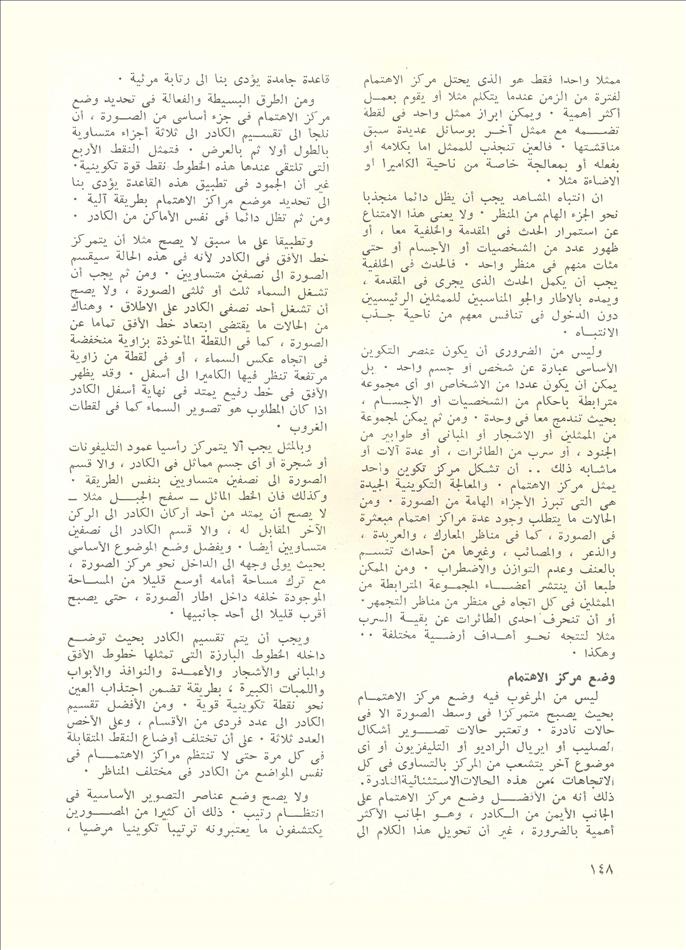 ممثلا واحدا فقط هو الذى يحتل مركز الاهتمام
لفترة من الزمن عندما يتكلم مثلا أو يقوم بعمــل
أكثر أهمية ٠ ويمكن ابراز ممثل واحد فى لقطة
تضــــمه مع ممثل آخــر بوسائل عديدة سبق
مناقشتها ٠ فالعين تنجذب للممثل اما بكلامه أو
بفعله أو بمعالجة خاصة من ناحية الكاميرا أو
الاضاءة مثلا ٠
ان انتباه المشاهد يجب أن يظل دائما منجذبا
نحو الجزء الهام من المنظر ٠ ولا يعنى هذا الامتناع
عن استمرار الحدث فى المقدمة والخلفية معا ، أو
ظهور عدد من الشخصيات أو الأجسام أو حتى
مئات منهم فى منظر واحد ٠ فالحدث فى الخلفية
يجب أن يكمل الحدث الذى يجرى فى المقدمة ،
ويمده بالاطار والجو المناسبين للممثلين الرئيسيين
دون الدخول فى تنافس معهم من ناحية جــذب
الانتبــاه ٠
وليس من الضرورى أن يكون عنصر التكوين
الأساسى عبارة عن شخص أو جسم واحد ٠ بل
يمكن أن يكون عددا من الاشخاص أو أى مجموعه
مترابطة باحكام من الشخصيات أو الأجســام ،
بحيث تندمج معا فى وحدة ٠ ومن ثم يمكن لمجموعة
من الممثلين أو الاشجار أو المبانى أو طوابير من
الجنود ، أو سرب من الطائرات ، أو عدة آلات أو
ماشابه ذلك ٠٠ أن تشكل مركز تكوين واحد
يمثل مركز الاهتمام ٠ والمعالجة التكوينية الجيدة
هى التى تبرز الأجزاء الهامة من الصورة ٠ ومن
الحالات ما يتطلب وجود عدة مراكز اهتمام مبعثرة
فى الصورة ، كما فى مناظر المعارك ، والعربدة ،
والذعر ، والمصائب ، وغيرها من أحداث تتســم
بالعنف وعدم التوازن والاضطراب ٠ ومن الممكن
طبعا أن ينتشر أعضــــاء المجموعة المترابطة من
الممثلين فى كل اتجاه فى منظر من مناظر التجمهر٠
أو أن تنحرف احدى الطائرات عن بقيــة السرب
مثلا لتتجه نحــو أهــداف أرضــية مختلفة ٠٠
وهكذا ٠
وضع مركز الاهتمام
ليس من المرغوب فيه وضع مركز الاهتمــام
بحيث يصبح متمركزا فى وسط الصورة الا فى
حالات نادرة ٠ وتعتبر حالات تصــــوير أشكال
الصليب أو ايريال الراديو أو التليفزيون أو أى
موضوع آخر يتشعب من المركز بالتساوى فى كل
الاتجاهات ،من هذه الحالات الاستثنائية النادرة.
ذلك أنه من الأفضــل وضع مركز الاهتمام على
الجانب الأيمن من الــكادر ، وهــو الجانب الأكثر
أهمية بالضرورة ، غير أن تحويل هذا الكلام الى
قاعدة جامدة يؤدى بنا الى رتابة مرئية ٠
ومن الطرق البسيطة والفعالة فى تحديد وضع
مركز الاهتمام فى جزء أساسى من الصــورة ، أن
نلجأ الى تقســـيم الكادر الى ثلاثة أجزاء متساوية
بالطول أولا ثم بالعرض ٠ فتمثل النقط الأربع
التى تلتقى عندها هذه الخطوط نقط قوة تكوينية٠
غير أن الجمود فى تطبيق هذه القاعدة يؤدى بنا
الى تحديد موضع مراكز الاهتمام بطريقة آلية ٠
ومن ثم تظل دائما فى نفس الأماكن من الكادر ٠
وتطبيقا على ما سبق لا يصح مثلا أن يتمركز
خط الأفق فى الكادر لأنه فى هذه الحالة سيقسم
الصورة الى نصفين متساويين ٠ ومن ثم يجب أن
تشغل السماء ثلث أو ثلثى الصورة ، ولا يصح
أن تشغل أحد نصفى الكادر على الاطلاق ٠ وهناك
من الحالات ما يقتضى ابتعاد خط الأفق تماما عن
الصورة ، كما فى اللقطة المأخوذة بزاوية منخفضة
فى اتجاه عكس السماء ، أو فى لقطة من زاوية
مرتفعة تنظر فيها الكاميرا الى أسفل ٠ وقد يظهر
الأفق فى خط رفيع يمتد فى نهاية أسفل الكادر
اذا كان المطلوب هو تصوير السماء كما فى لقطات
الغروب ٠
وبالمثل يجب ألا يتمركز رأسيا عمود التليفونات
أو شجرة أو أى جسم مماثل فى الكادر ، والا قسم
الصورة الى نصفين متساويين بنفس الطريقة ٠
وكذلك فان الخط المائل ــ سفح الجبــل مثلا ــ
لا يصح أن يمتد من أحد أركان الكادر الى الركن
الآخر المقابل له ، والا قسم الكادر الى نصفين
متساويين أيضا ٠ ويفضل وضع الموضوع الأساسى
بحيث يولى وجهه الى الداخل نحو مركز الصورة ،
مع ترك مساحة أمامه أوسع قليلا من المســاحة
الموجودة خلفه داخل اطار الصورة ، حتى يصبح
أقرب قليلا الى أحد جانبيها ٠
ويجب أن يتم تقسيم الكادر بحيث توضــع
داخله الخطوط البارزة التى تمثلها خطوط الأفق
والمبانى والأشجار والأعمــدة والنوافذ والأبواب
واللمبات الكبيرة ، بطريقة تضمن اجتذاب العين
نحو نقطة تكوينية قوية ٠ ومن الأفضل تقسيم
الكادر الى عدد فردى من الأقسام ، وعلى الأخص
العدد ثلاثة ٠ على أن تختلف أوضاع النقط المتقابلة
فى كل مرة حتى لا تنتظم مراكز الاهتمــــام فى
نفس المواضع من الكادر فى مختلف المناظر ٠
ولا يصح وضع عناصر التصوير الأساسية فى
انتظــــام رتيب ٠ ذلك أن كثيرا من المصــورين
يكتشفون ما يعتبرونه ترتيبا تكوينيا مرضيا ،
١٤٨